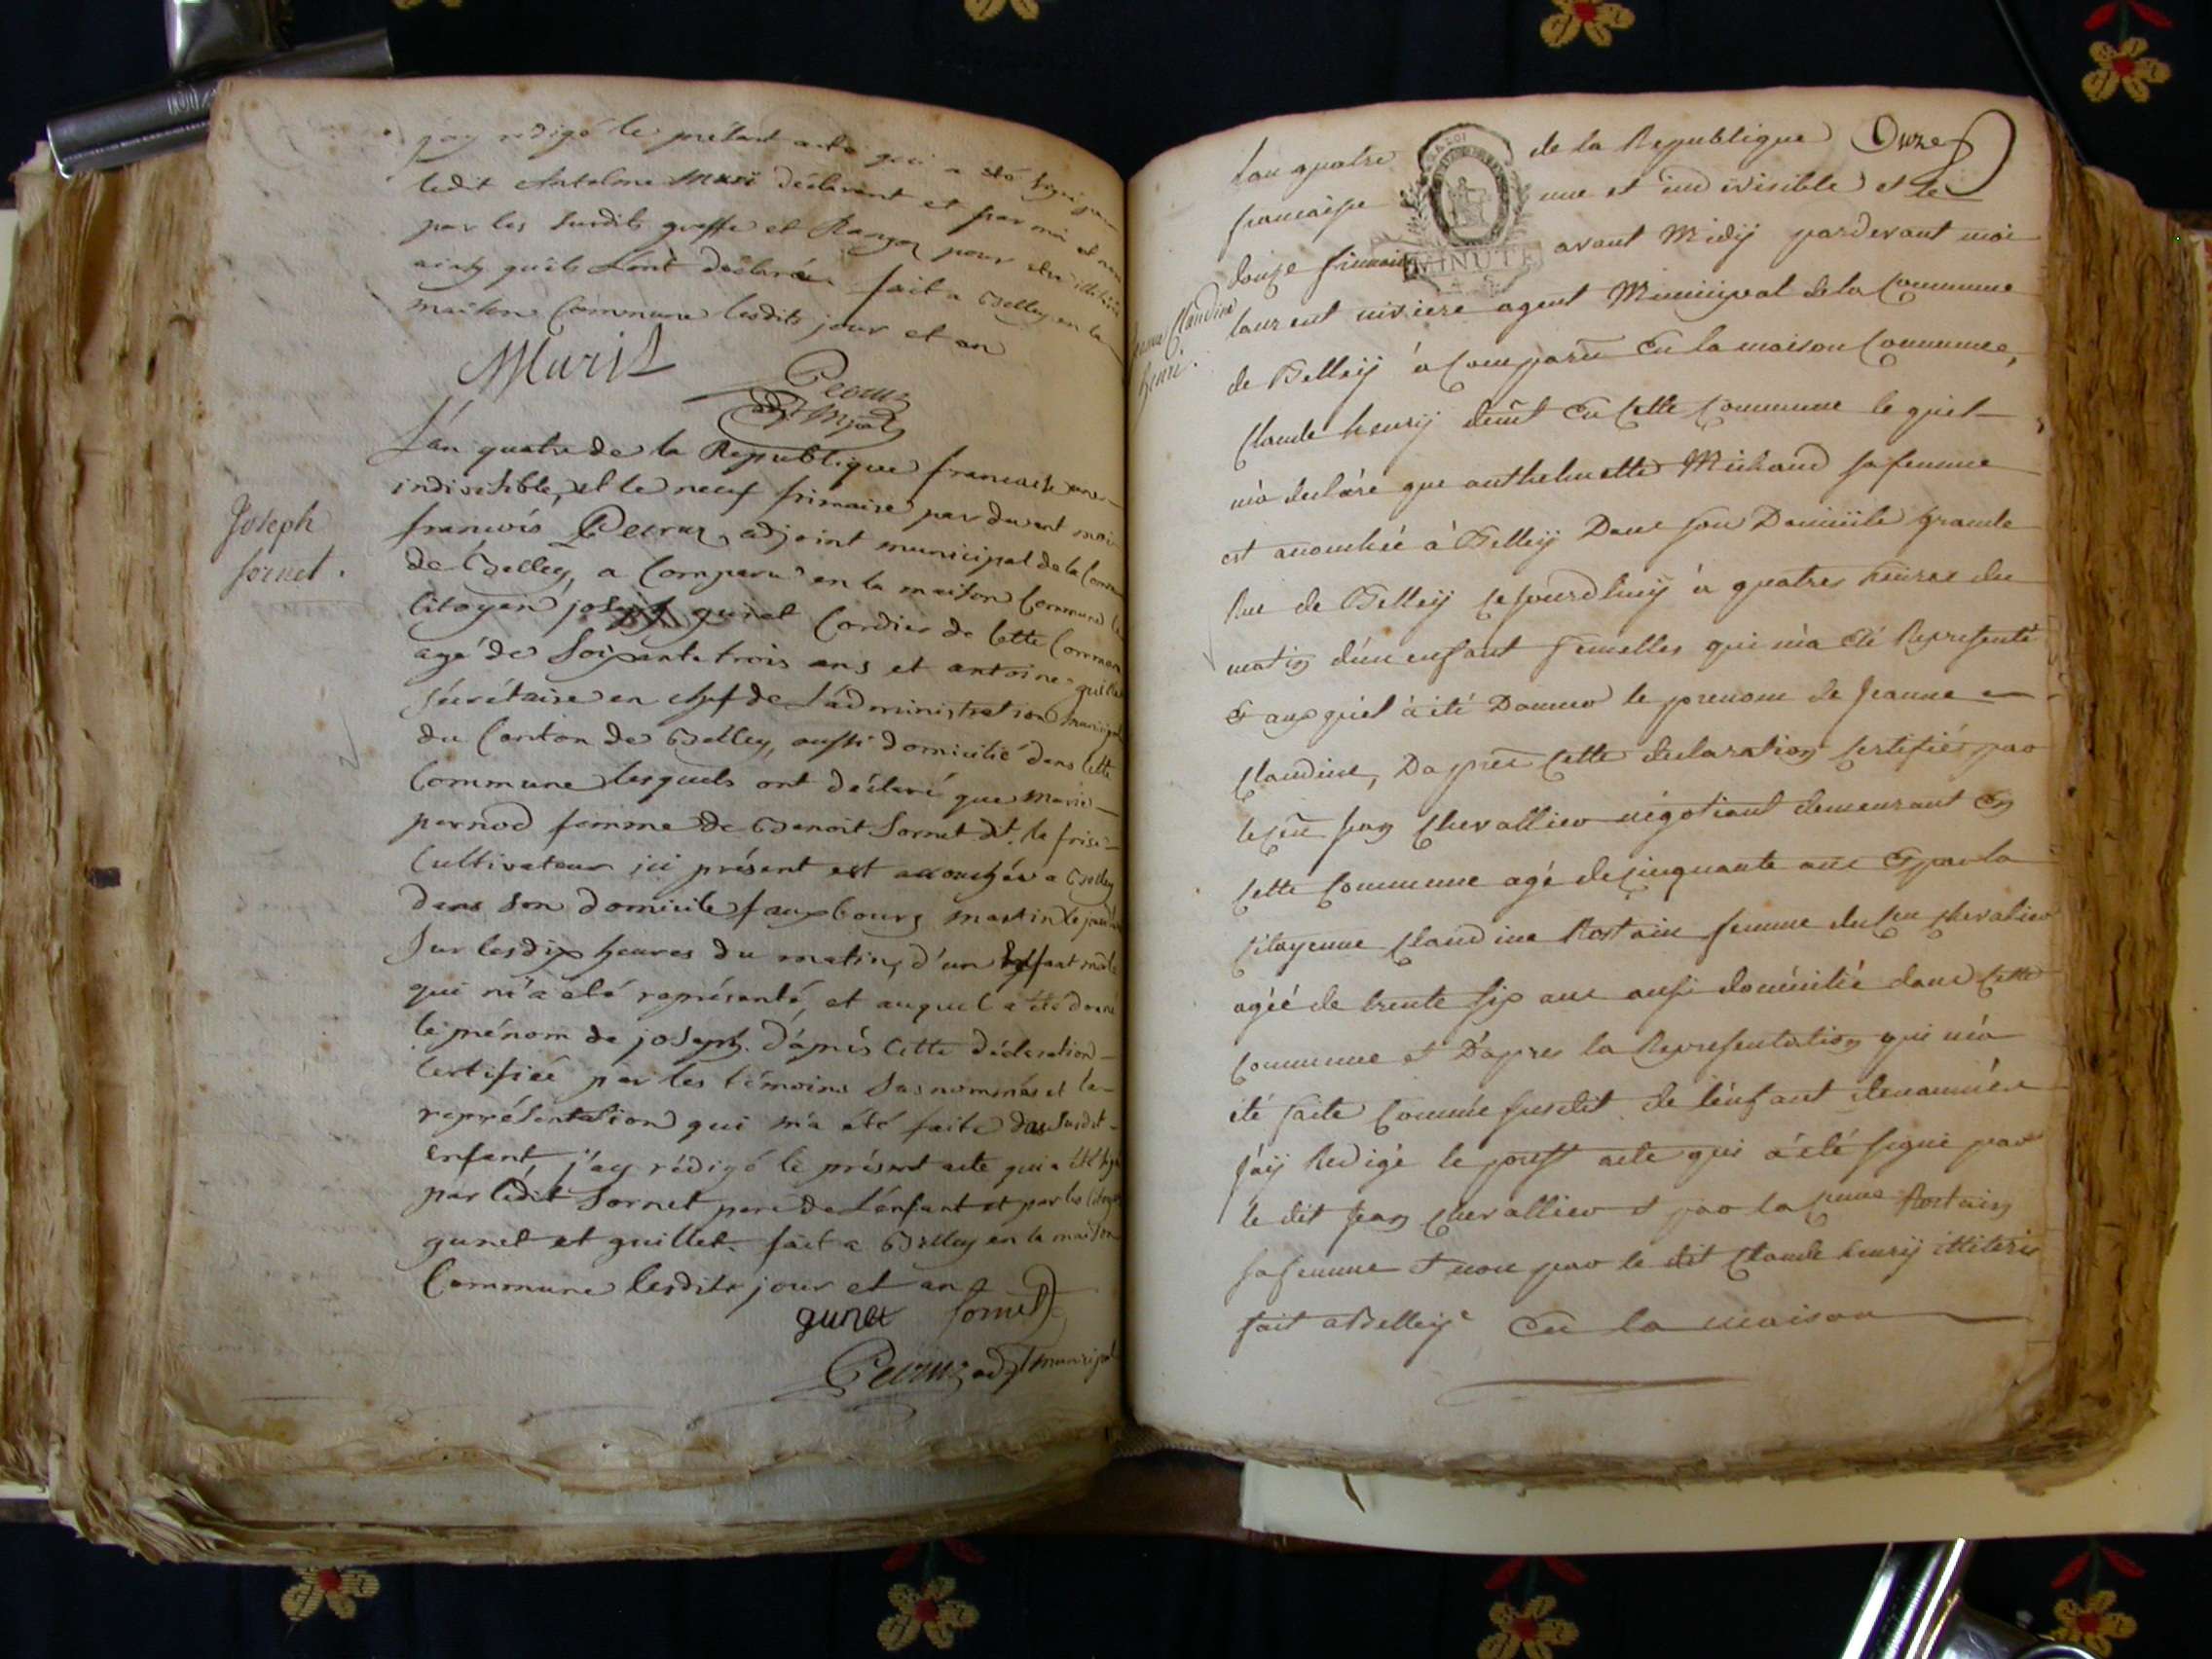 j'ay redigé le présent acte qui a été signé par
ledit Antelme Marit déclarant et par moi et non
par les susdits greffe et Ranzon pour être illitérés
ainsy qu'ils L'ont déclarés. fait a Belley en la
maison Commune lesdits jour et an
Marit
Peoruz
adjt Mpal
L'an quatre de la Republique francaise une
indivisible, et le neuf frimaire par devant moi
francois Peoruz adjoint municipal de la Commune
de Belley, a Comparu en la maison Commune le
Citoyen joseph gunet Cordier de Cette Commune
agé de Soixante trois ans et antoine guillet
Sécrétaire en chef de L'administration municipal
du Canton de Belley, aussi domicilié dans Cette
Commune lesquels ont déclaré que Marie
pernod femme de Benoit Sornet dt. la frise
Cultivateur ici présent est accouchée a Belley
dans Son domicile fauxbourg martin le jourd'hui
Sur les dix heures du matin, d'un Enfant male
qui m'a été représenté, et auquel a été donné
le prénom de joseph. D'après Cette Déclaration
Certifiée par les témoins Susnommés et la
représentation qui m'a été faite du Susdit
enfant, j'ay rédigé le présent acte qui a été signé
par ledit Sornet pere de L'enfant et par les Citoyens
gunet et guillet. fait a Belley en la maison
Commune lesdits jour et an
gunet Sornet
Peoruz adjt municipal
Joseph
Sornet.
Lan quatre de la Republique Onze
francaise une et indivisible et le
douze frimaire avant Midy pardevant moi
MINUTE
Jeanne Claudine
henri.
laurent riviere agent Municipal de la Commune
de Belley à Comparu En la maison Commune,
Claude henry demt En Cette Commune le quel
m'a declaré que anthelmette Michaud sa femme
est accouchée à Belley Dans son Domicile grande
Rue de Belley Cejourdhuy à quatres heures du
matin d'un enfant femelles qui m'a été Representé
Et auxquel à été Donner le prenom de Jeanne
Claudine, Dapres Cette declaration Certifiée par
le Cen Jean Chevallier négotiant demeurant En
Cette Commune agé de cinquante ans Et par la
Citoyenne Claudine Rostain femme du Cen Chevalier
agée de trente six ans aussi domicilié dans Cette
Commune et D'apres la Representation qui m'a
été faite Comme susdit de l'enfant denommée
J'ay Redigé le presst acte qui à été signé par
le dit Jean Chevallier et par la Cenne Rostain
sa femme et non par le dit Claude henry illiteré
fait a Belley En la maison